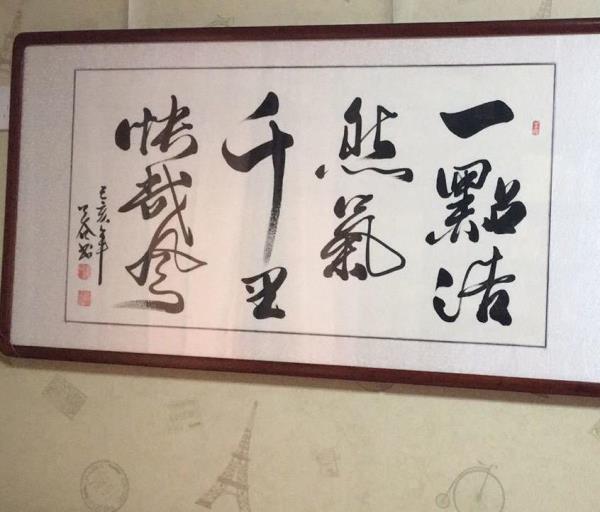 一點浩
然氣
千里
快哉風
己亥年